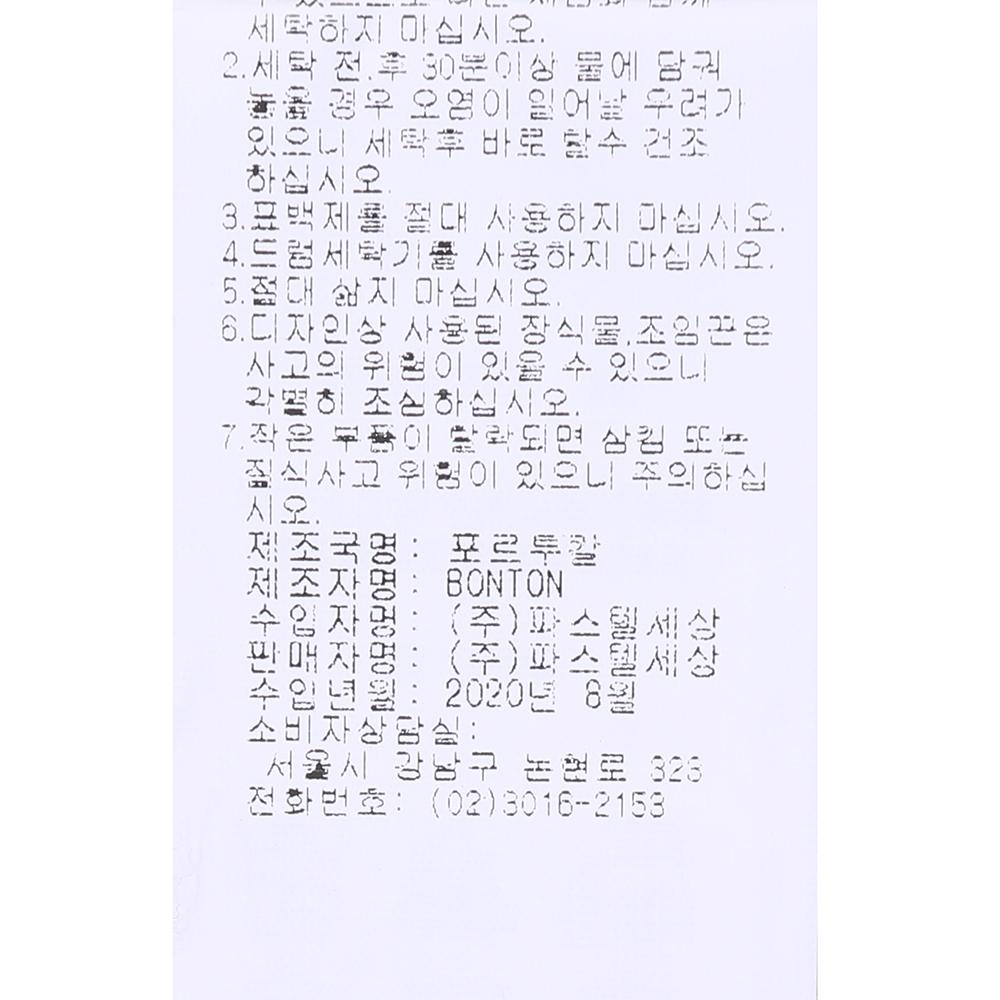 세탁하지 마십시오.
2.세탁 전.후 30분이상 물에 담궈
놓을 경우 오염이 일어날 우려가
있으니 세탁후 바로 탈수 건조
하십시오.
3.표백제를 절대 사용하지 마십시오.
4.드럼세탁기를 사용하지 마십시오.
5.절대 삶지 마십시오.
6.디자인상 사용된 장식물,조임끈은
사고의 위험이 있을 수 있으니
각별히 조심하십시오.
7.작은 부품이 탈락되면 삼킴 또는
질식사고 위험이 있으니 주의하십
시오.
제조국명: 포르투칼
제조자명: BONTON
수입자명: (주)파스텔세상
판매자명: (주)파스텔세상
수입년월: 2020년 8월
소비자상담실:
서울시 강남구 논현로
전화번호: (02)3016-2153